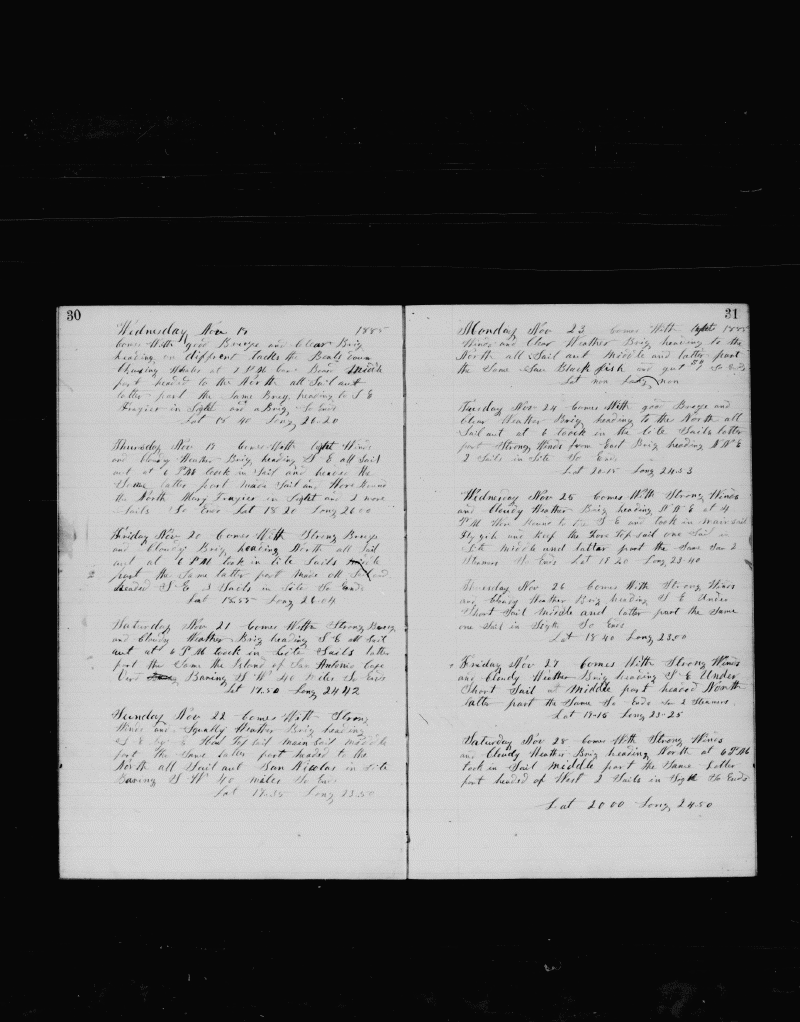 30
Wednesday Nov 1885
Comes With good Breeze and Clear Brig
heading on diffrent tacks the Boats down
Chasing Whales at 1 P.M. Came Board Middle
part headed to the North all Sail aut
latter part the Same Brig heading to S E
Frazier in Sight and a Brig So Ends
Lat 18 40 Long 26-20
Thursday Nov 19 Comes With light Winds
and Cloudy Weather Brig heading S E all Sail
aut at 6 P M took in Sail and headed the
Same latter part made Sail and Wore Round
the North Mary Frazier in Sight and 2 more
Sails So Ends Lat 18 20 Long 26 00
Friday Nov 20 Comes With Strong Breeze
and Cloudy Brig heading North all Sail
aut at 6 P M took in lite Sails middle
part the Same latter part made all Sail and
headed S E 2 Sails in Site So Ends
Lat Long 26-04
Saturday Nov 21 Comes With Strong Breeze
and Cloudy Weather Brig heading S E all Sail
aut at 6 P M took in Lite Sails latter
part the Same the Island of San Antonio Cape
Verd Baring S W 40 miles So Ends
Lat 17.50 Long 24 42
Sunday Nov 22 Comes With Strong
Winds and Squally Weather Brig heading
S E Top Sail main Sail middle
part the Same latter part headed to the
North all Sail aut San Nicolas in Site
Baring S W 40 miles So Ends
Lat 17-35 Long 23-50
31
Monday Nov 23 Comes With light 1885
Winds and Clear Weather Brig heading to the
North all Sail aut Middle and latter part
the Same Saw Black fish and got So Ends
Lat non Long non
Tuesday Nov 24 Comes With good Breeze and
Clear Weather Brig heading to the North all
Sail aut at 6 toock in the Lite Sails latter
part Strong Winds from East Brig heading N N E
2 Sails in Site So Ends
Lat 20-15 Long 24-53
Wednesday Nov 25 Comes With Strong Winds
and Cloudy Weather Brig heading N N E at 4
P M the S E and took in main Sail
Fly gib and keep the Fore Top sail one Sail in
Site middle and latter part the Same Saw 2
Steamers So Ends Lat Long 23-40
Thursday Nov 26 Comes With Strong Winds
and Cloudy Weather Brig heading S E Under
Short Sail Middle and latter part the Same
one Sail in Sight So Ends
Lat 18 40 Long 23 50
Friday Nov 27 Comes With Strong Winds
and Cloudy Weather Brig heading S E Under
Short Sail at Middle part headed North
latter part the Same So Ends Saw 2 Steamers
Lat 19-15 Long 23-25
Saturday Nov 28 Comes With Strong Winds
and Cloudy Weather Brig heading North at 6 P M
took in Sail middle part the Same latter
part headed of West 2 Sails in Sight So Ends
Lat 20 00 Long 24.50